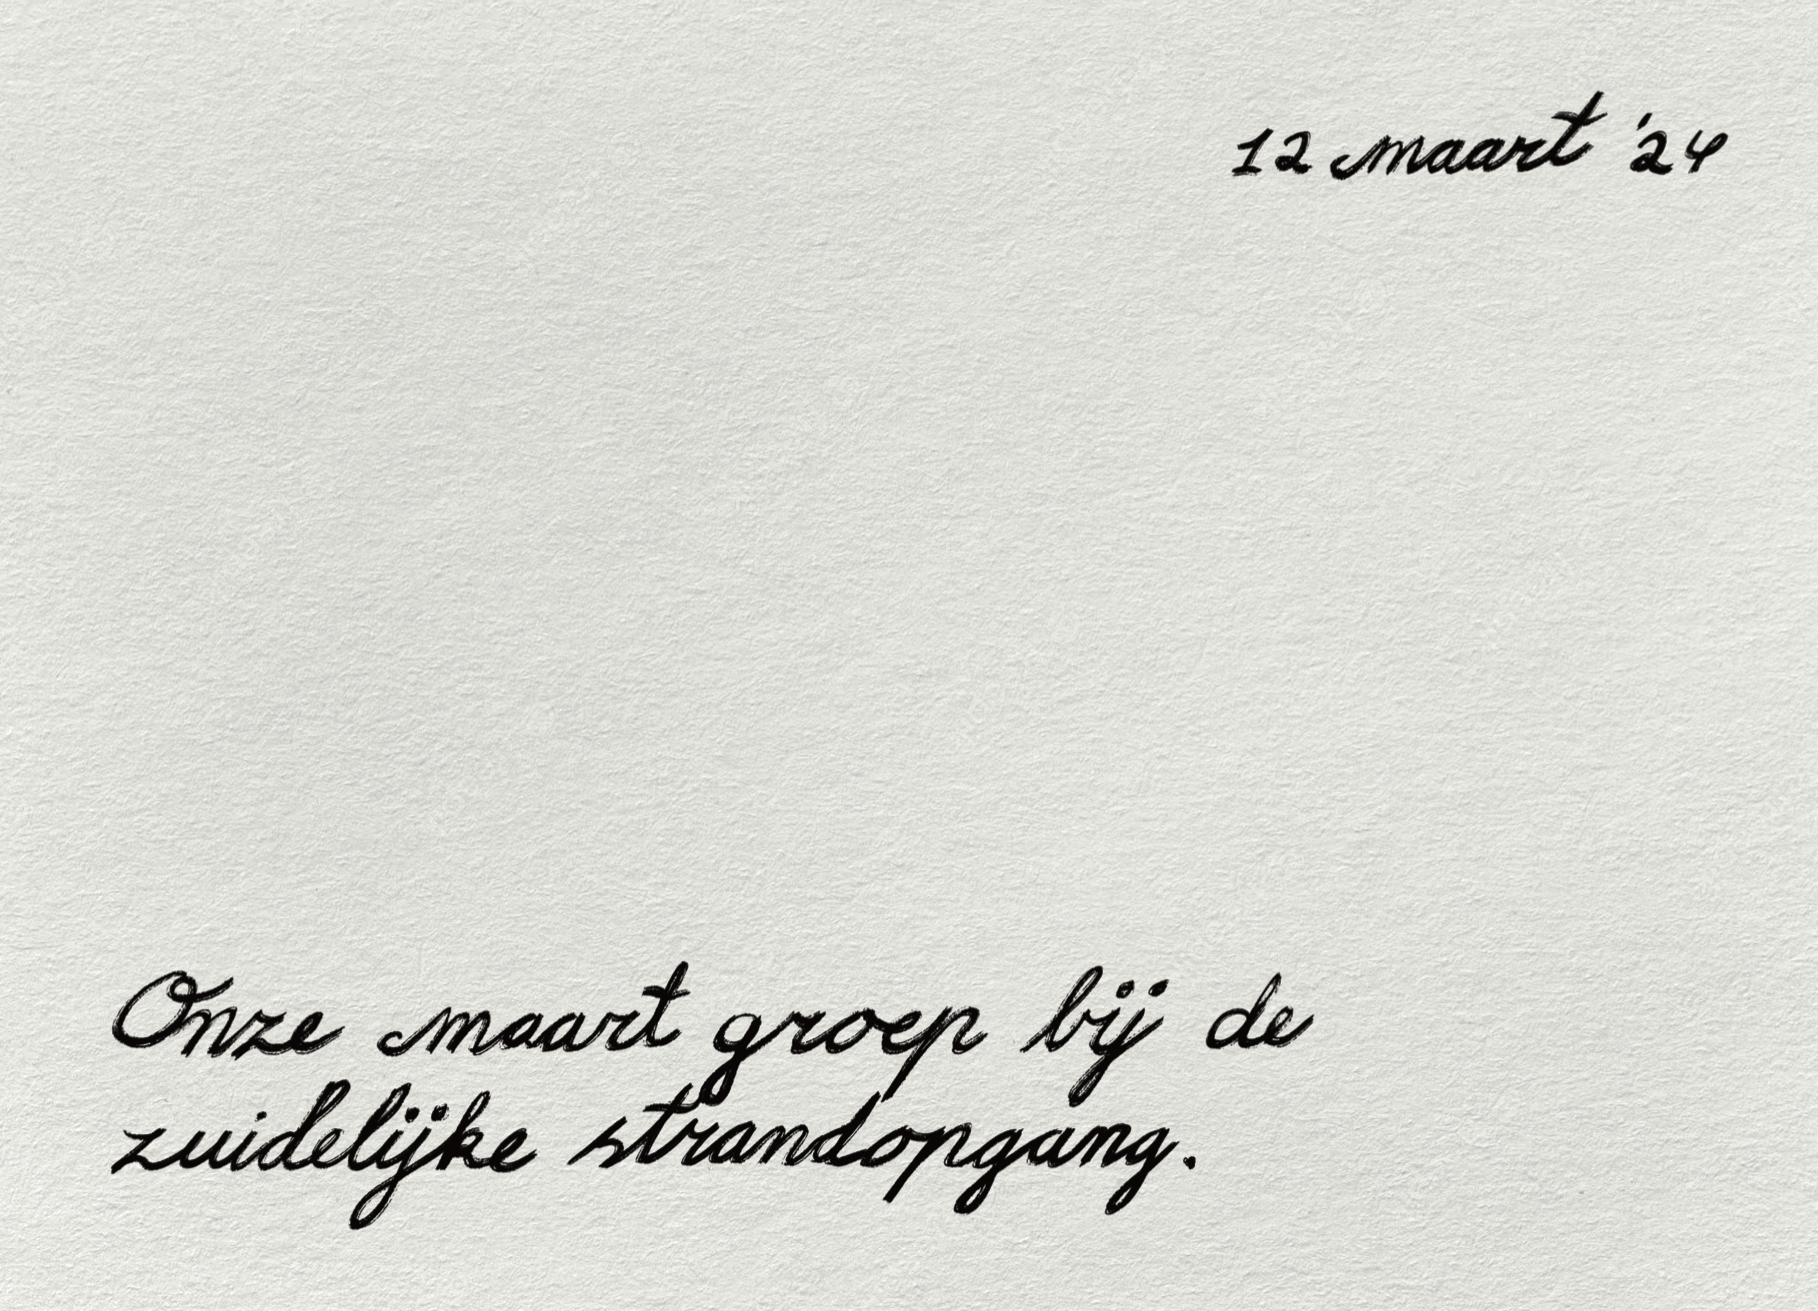 12 maart '24
Onze maart groep bij de
zuidelijke strandopgang.